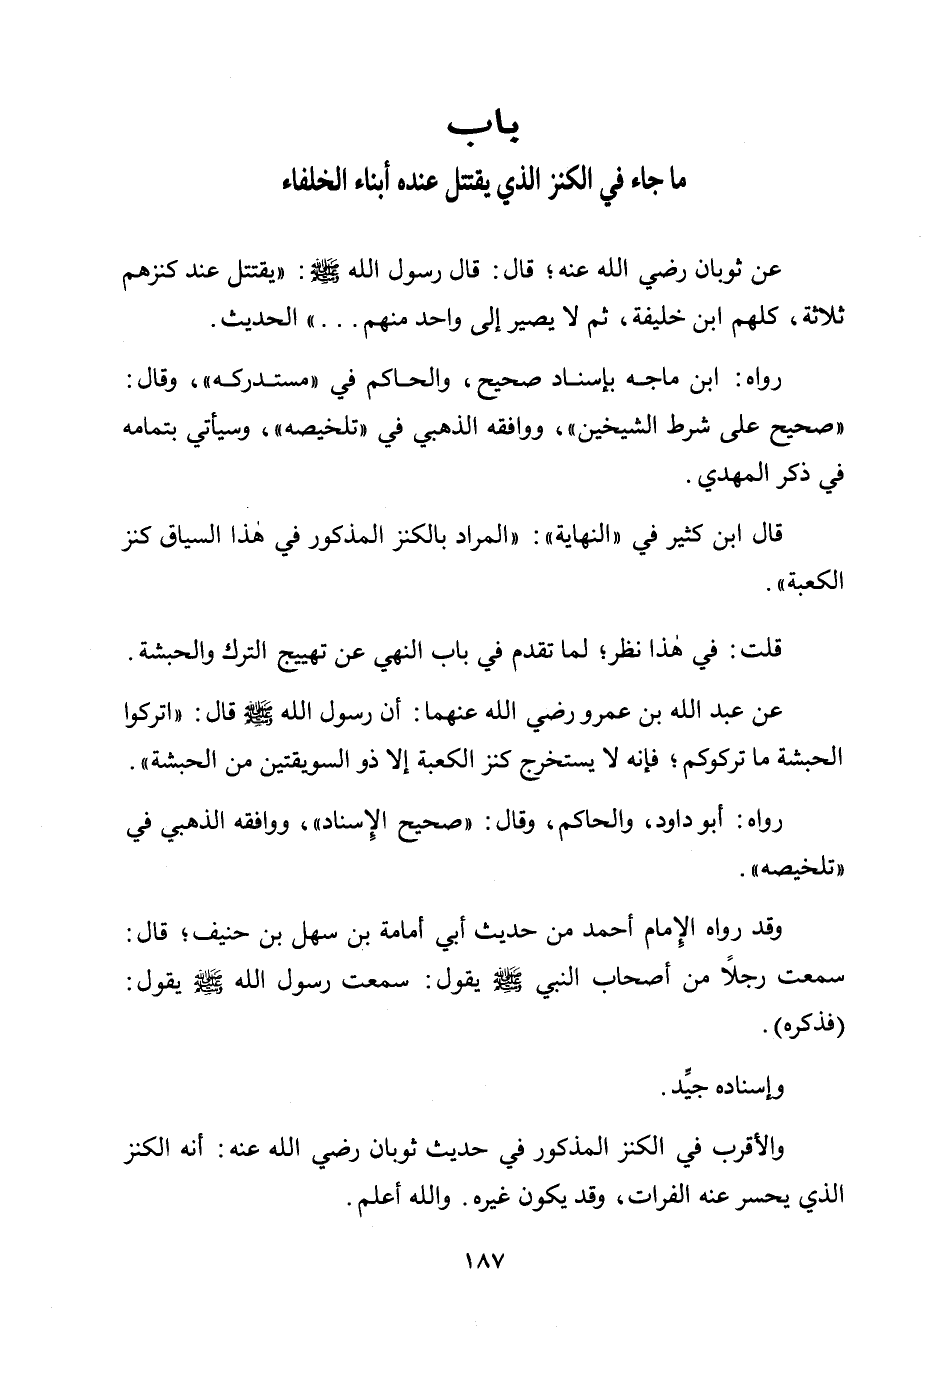 باب
ما جاء في الكنز الذي يقتتل عنده أبناء الخلفاء
عن ثوبان رضي الله عنه؛ قال: قال رسول الله ﷺ: «يقتتل عند كنزهم
ثلاثة، كلهم ابن خليفة، ثم لا يصير إلى واحد منهم...» الحديث.
رواه: ابن ماجه بإسناد صحيح، والحاكم في «مستدركه»، وقال:
«صحيح على شرط الشيخين»، ووافقه الذهبي في «تلخيصه»، وسيأتي بتمامه
في ذكر المهدي.
قال ابن كثير في «النهاية»: «المراد بالكنز المذكور في هٰذا السياق كنز
الكعبة».
قلت: في هٰذا نظر؛ لما تقدم في باب النهي عن تهييج الترك والحبشة.
عن عبد الله بن عمرو رضي الله عنهما: أن رسول الله ﷺ قال: «اتركوا
الحبشة ما تركوكم؛ فإنه لا يستخرج كنز الكعبة إلا ذو السويقتين من الحبشة».
رواه: أبو داود، والحاكم، وقال: «صحيح الإِسناد»، ووافقه الذهبي في
«تلخيصه».
وقد رواه الإِمام أحمد من حديث أبي أمامة بن سهل بن حنيف؛ قال:
سمعت رجلًا من أصحاب النبي ﷺ يقول: سمعت رسول الله ﷺ يقول:
(فذكره).
وإسناده جيِّد.
والأقرب في الكنز المذكور في حديث ثوبان رضي الله عنه: أنه الكنز
الذي يحسر عنه الفرات، وقد يكون غيره. والله أعلم.
١٨٧